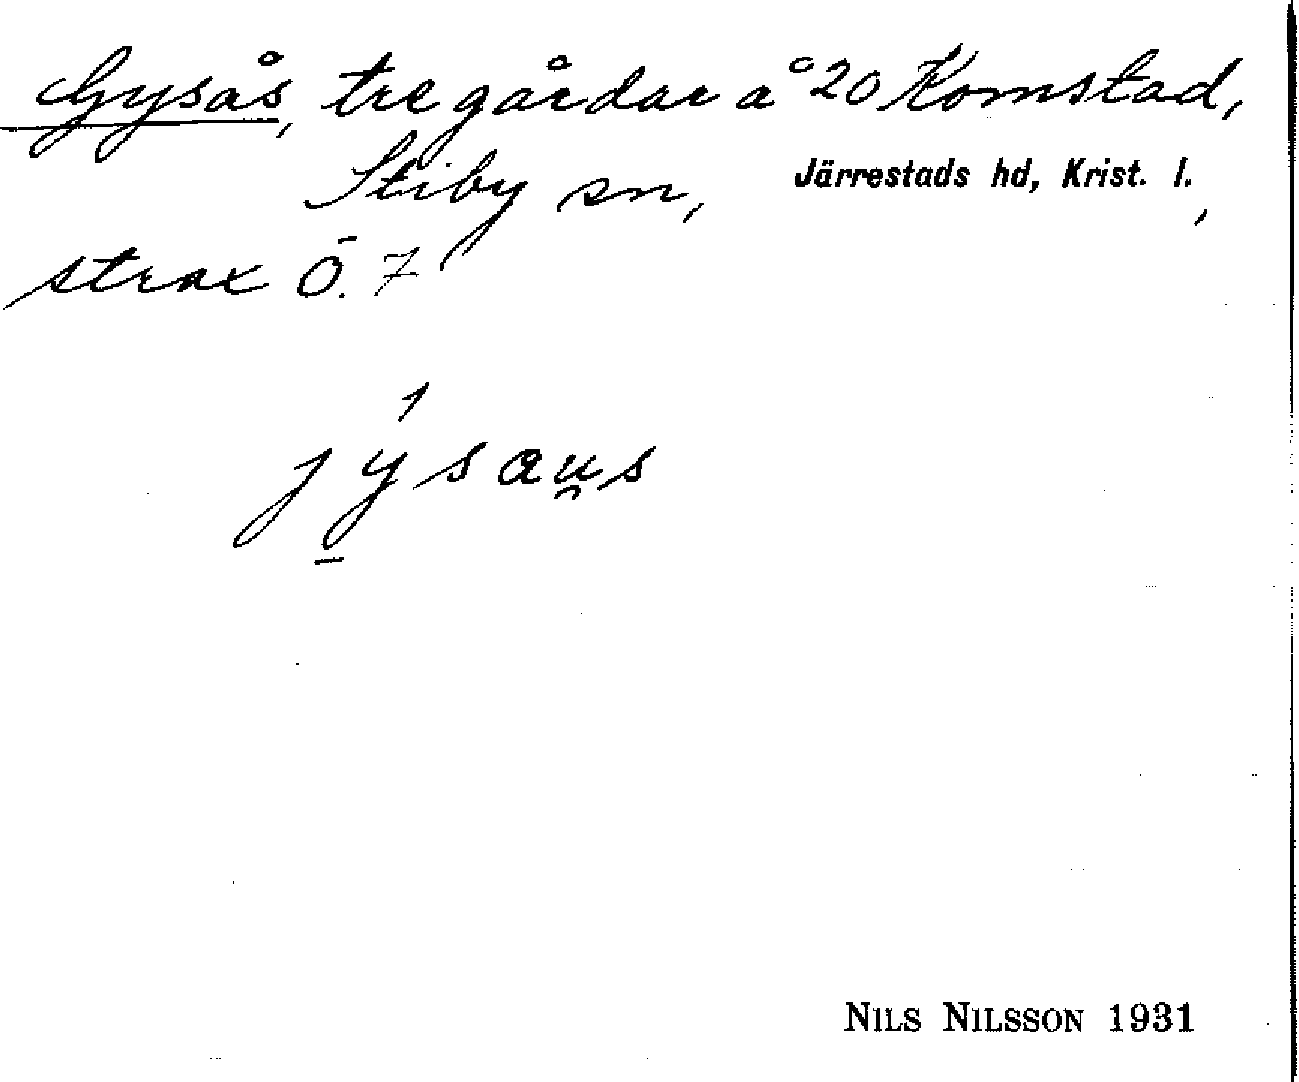 Gysås, tre gårdar å 20 Komstad,
Stiby sn, Järrestads hd, Krist. l.,
strax Ö. 7
jýsau̯s
NILS NILSSON 1931